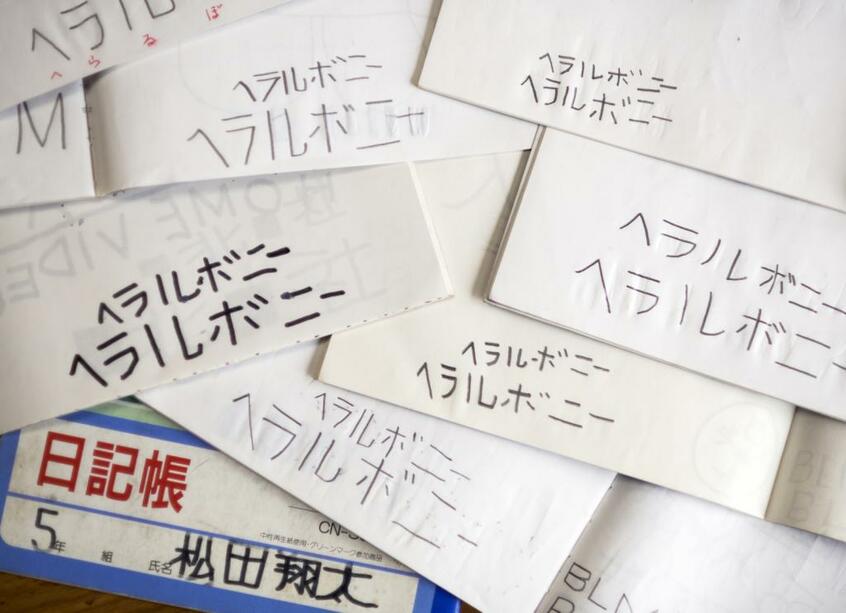 ヘラル
へらるぼ
M
ヘラルボニー
ヘラルボニー
ヘラルボニー
ヘラルボニー
ヘラルボニー
ヘラルボニー
ヘラルボニー
ヘラルボニー
ヘラルボニー
ヘラルボニー
ヘラルボニー
ヘラルボニー
日記帳
CN-
中性再生紙使用・グリーンマーク参加商品
5年 組 氏名 松田翔太
BLN